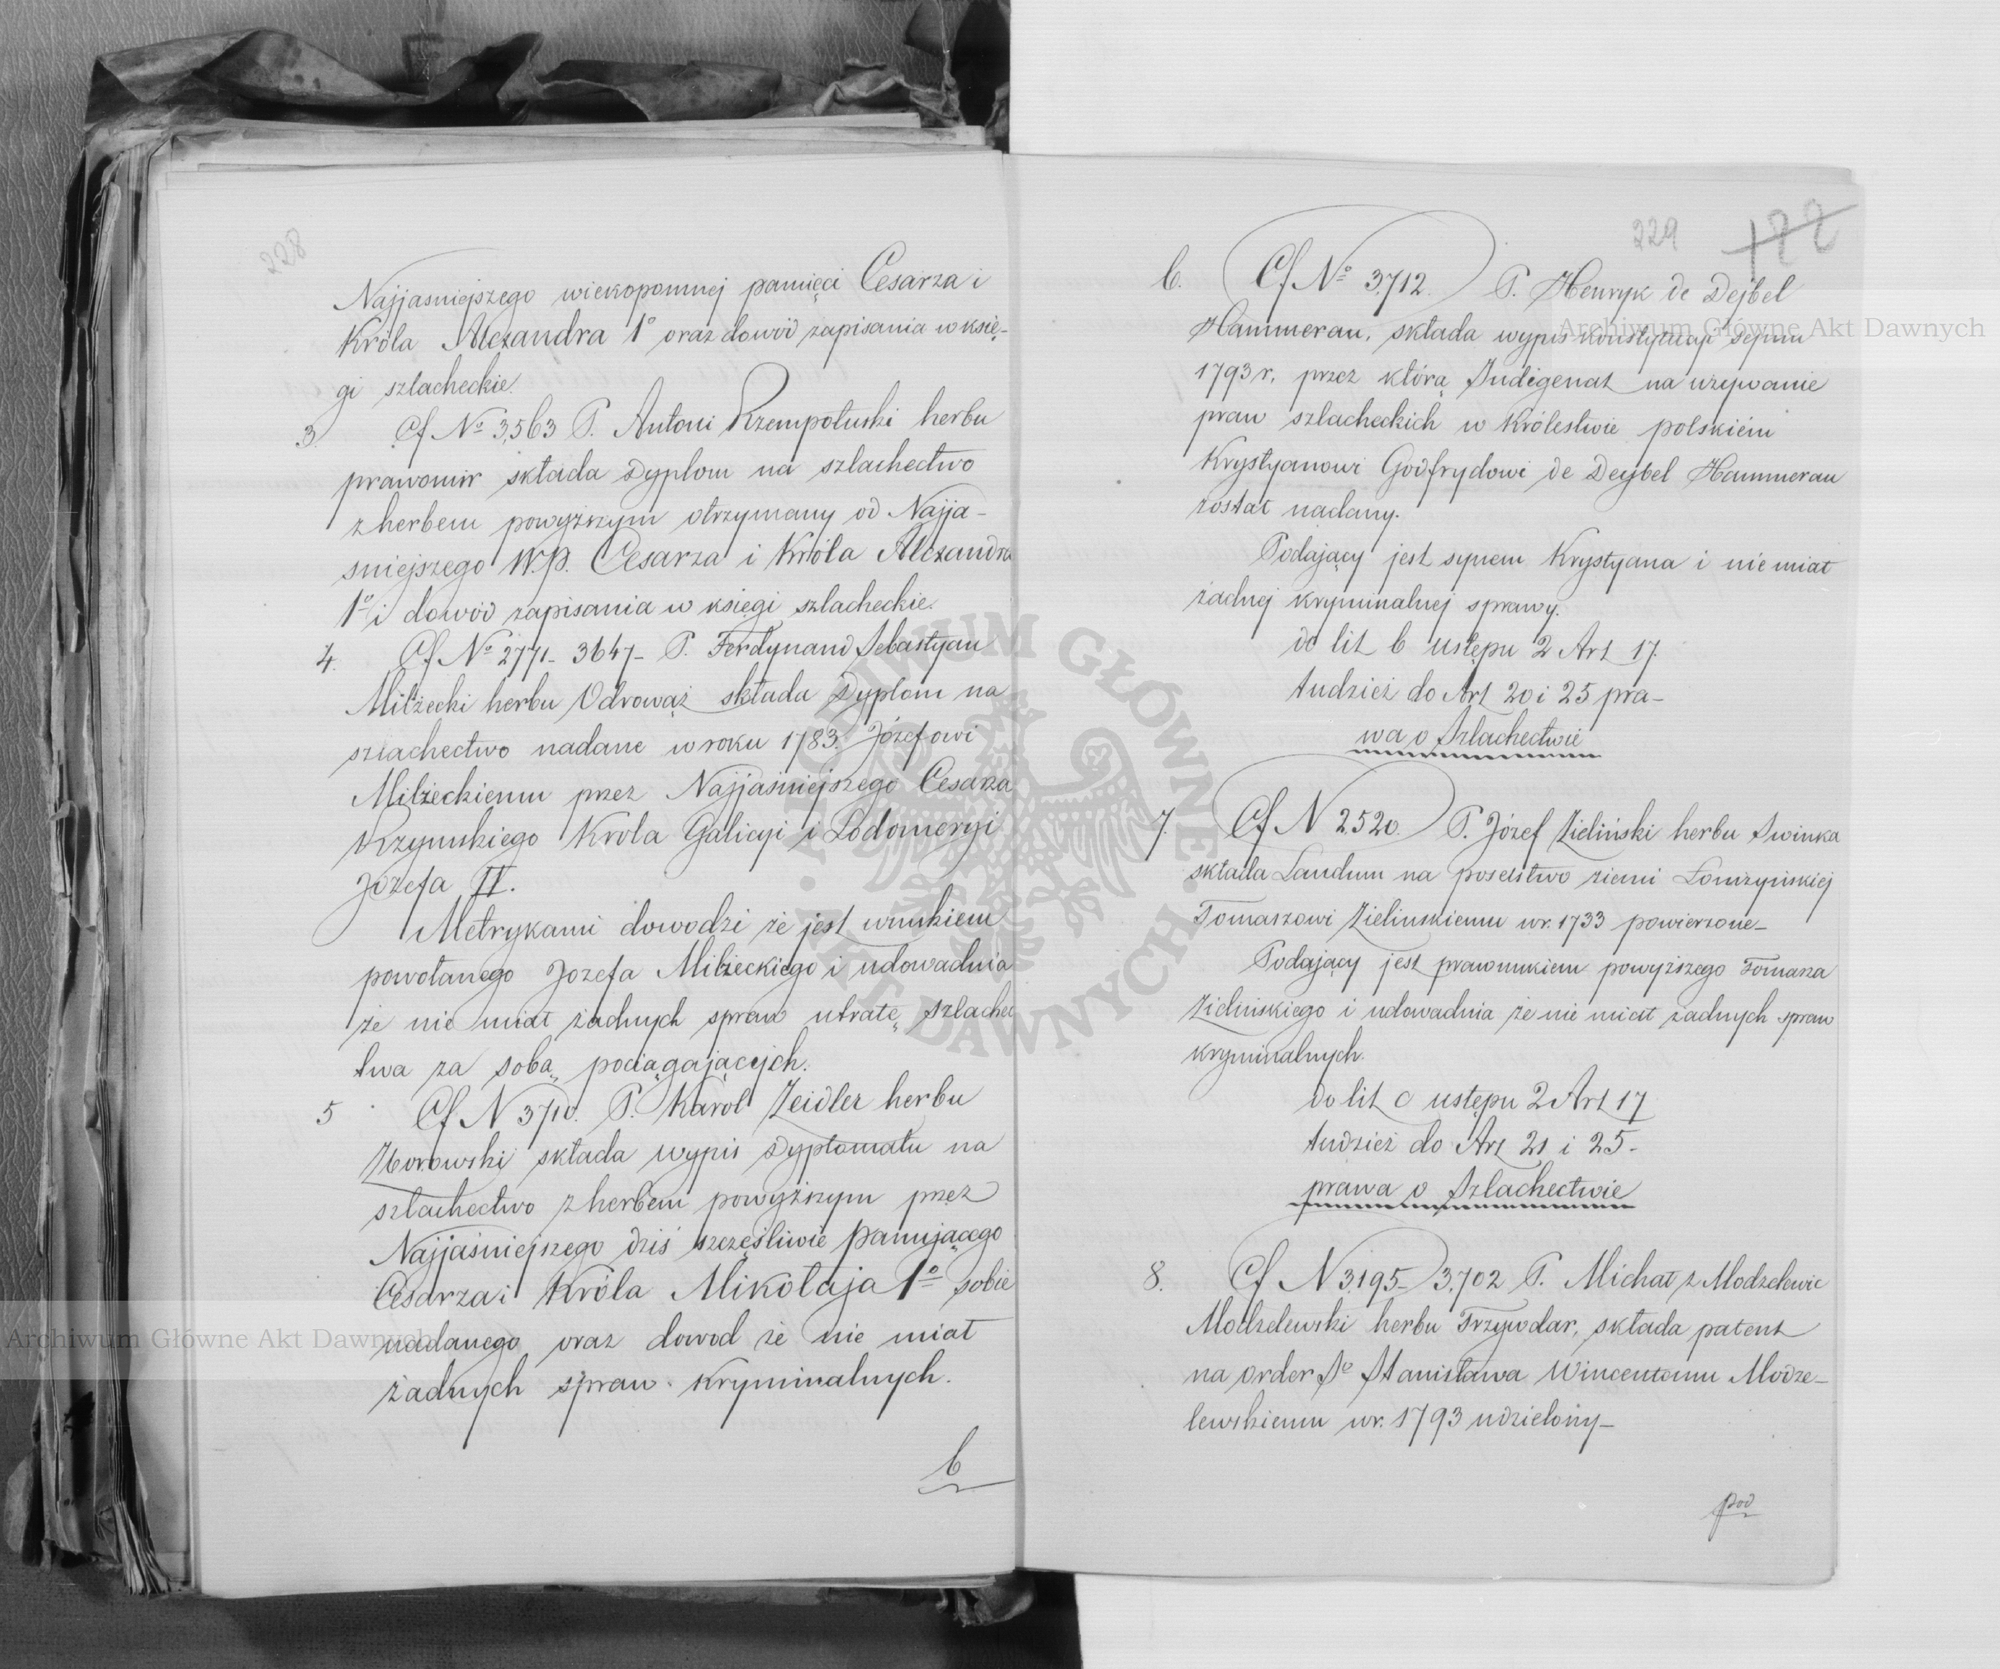 228
Najjasniejszego wiekopomnej pamięci Cesarza i
Króla Alexandra 1º oraz dowód zapisania w księ-
gi szlacheckie.
3. Cf Nº 3,563 P. Antoni Rzempołuski herbu
prawomir składa Dyplom na szlachectwo
z herbem powyższym otrzymany od Najja-
sniejszego W.P. Cesarza i Króla Alexandra
1º i dowód zapisania w księgi szlacheckie.
4. Cf Nº 2771- 3647- P. Ferdynand Sebastyan
Milżecki herbu Odrowąż składa Dyplom na
szlachectwo nadane w roku 1783. Józefowi
Milżeckiemu przez Najjasniejszego Cesarza
Rzymskiego Króla Galicyi i Lodomeryi
Józefa II.
Metrykami dowodzi że jest wnukiem
powołanego Jozefa Milżeckiego i udowadnia
że nie miał żadnych spraw utratę szlachec
twa za sobą pociągających.
5 Cf N 3710. P. Karol Zeidler herbu
Zborowski składa wypis Dyplomatu na
szlachectwo z herbem powyższym przez
Najjaśniejszego dziś szczęśliwie panującego
Cesarza i Króla Mikołaja 1º sobie
nadanego oraz dowod że nie miał
żadnych spraw kryminalnych.
6
229 122
6. Cf Nº 3,712. P. Henryk de Dejbel
Hammerau, składa wypis konstytucyi sejmu
1793 r. przez którą Indigenat na używanie
praw szlacheckich w Królestwie polskiém
Krystyanowi Godfrydowi de Deybel Hammerau
został nadany.
Podający jest synem Krystyana i nie miał
żadnej kryminalnej sprawy.
do lit b ustępu 2 Art 17.
tudzież do Art 20 i 25 pra-
wa o Szlachectwie
7. Cf N 2520. P. Józef Zieliński herbu Swinka
składa Laudum na poselstwo ziemi Łomżyńskiej
Tomaszowi Zielinskiemu w r. 1733 powierzone-
Podający jest prawnukiem powyższego Tomasza
Zielińskiego i udowadnia że nie miał żadnych spraw
kryminalnych.
do lit c ustępu 2 Art 17
tudzież do Art 21 i 25-
prawa o Szlachectwie
8. Cf N 3195- 3,702 P. Michał z Modzelewic
Modzelewski herbu Trzywdar, składa patent
na order Sº Stanisława Wincentemu Modze-
lewskiemu w r. 1793 udzielony-
pod
Archiwum Główne Akt Dawnych
Archiwum Główne Akt Dawnych
ARCHIWUM GŁÓWNE AKT DAWNYCH